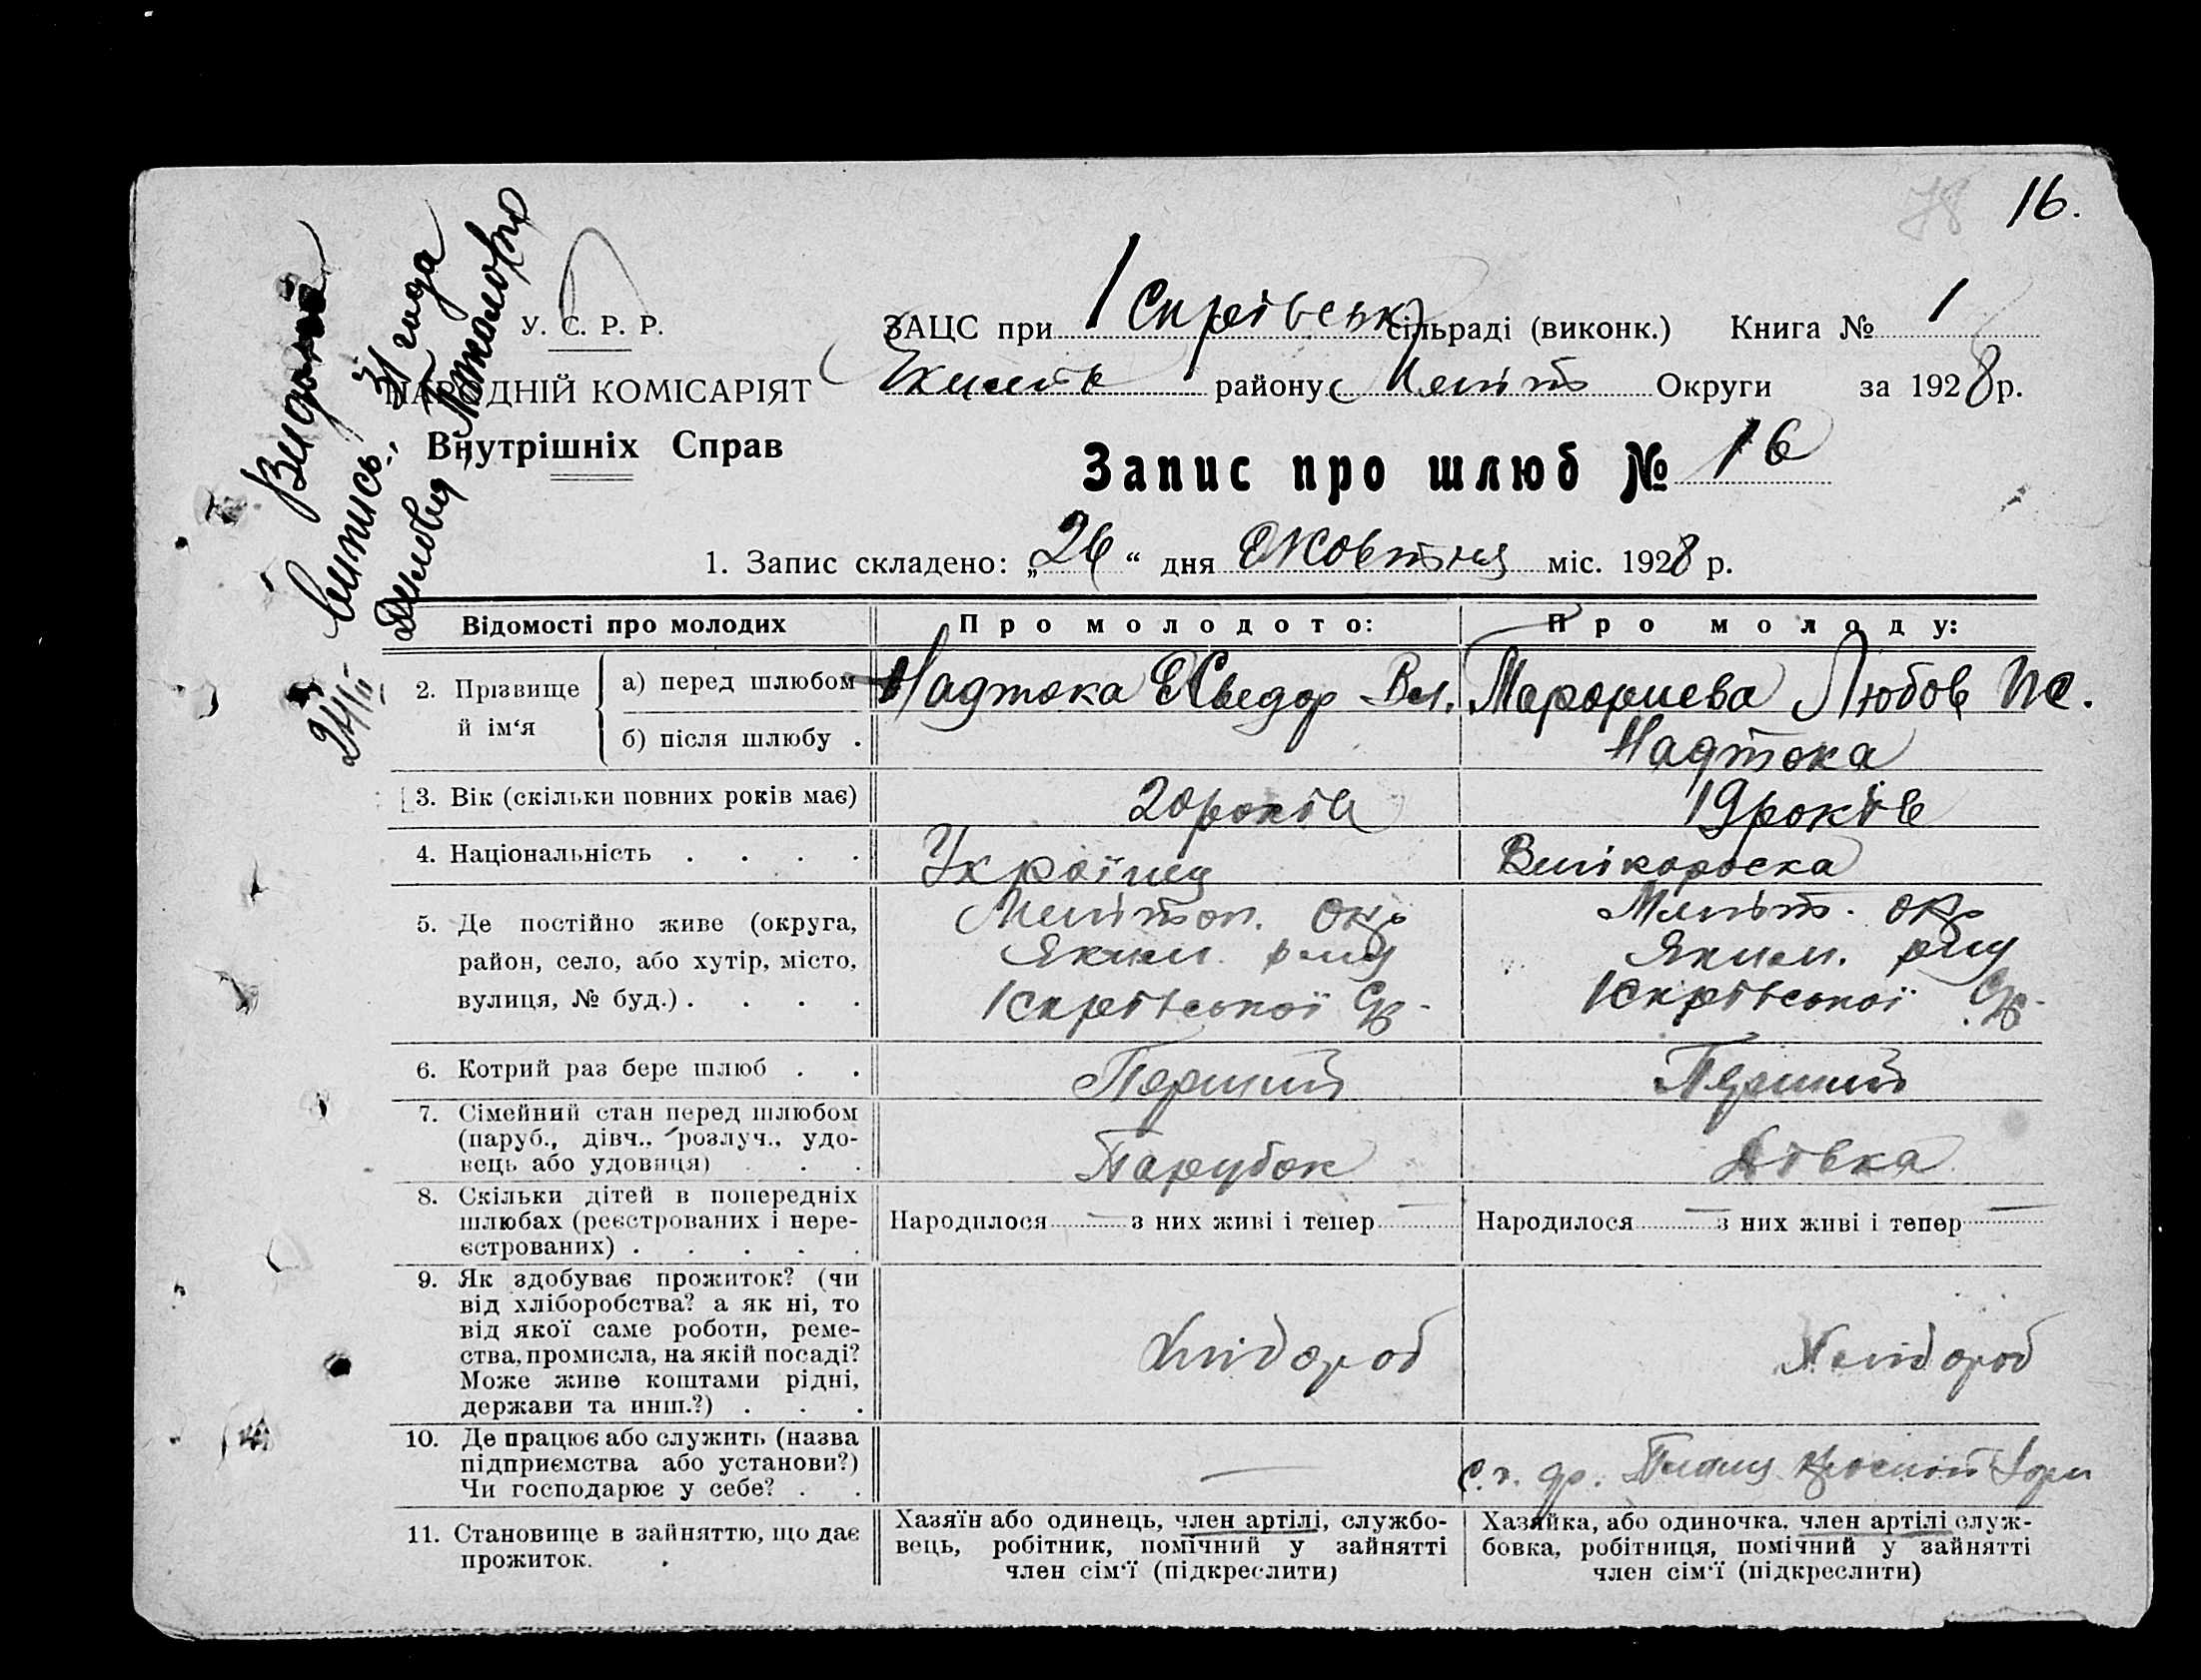 78 16.
Видана
выпись 31 года
24/II
У. С. Р. Р.
НАРОДНІЙ КОМІСАРІЯТ
Внутрішніх Справ
ЗАЦС при сільраді (виконк.) Книга № 1
району Меліт Округи за 1928 р.
Запис про шлюб № 16
1. Запис складено: „26“ дня Жовтня міс. 1928 р.
Відомості про молодих Про молодото: Про молоду:
2. Прізвище й ім‘я
а) перед шлюбом Надтока Хведор Вл. Любов
б) після шлюбу . Надтока
3. Вік (скільки повних років має) 20 років 19 років
4. Національність . . . . Українец Велікороска
5. Де постійно живе (округа, Мелітоп. окр Меліт. окр
район, село, або хутір, місто, Яким. р-ну Яким. рну
вулиця, № буд.) . . . .
6. Котрий раз бере шлюб . . Перший Перший
7. Сімейний стан перед шлюбом
(паруб., дівч., розлуч., удо-
вець або удовиця) . . . Парубок Дівка
8. Скільки дітей в попередніх
шлюбах (реєстрованих і нере-
єстрованих) . . . . .
Народилося — з них живі і тепер — Народилося — з них живі і тепер —
9. Як здобуває прожиток? (чи
від хліборобства? а як ні, то
від якої саме роботи, реме-
ства, промисла, на якій посаді?
Може живе коштами рідні,
держави та инш.?) . . .
Хлібороб Хлібороб
10. Де працює або служить (назва
підприємства або установи?)
Чи господарює у себе? . .
—
11. Становище в зайняттю, що дає
прожиток. .
Хазяїн або одинець, член артілі, службо-
вець, робітник, помічний у зайнятті
член сім‘ї (підкреслити)
Хазяйка, або одиночка, член артілі служ-
бовка, робітниця, помічний у зайнятті
член сім‘ї (підкреслити)